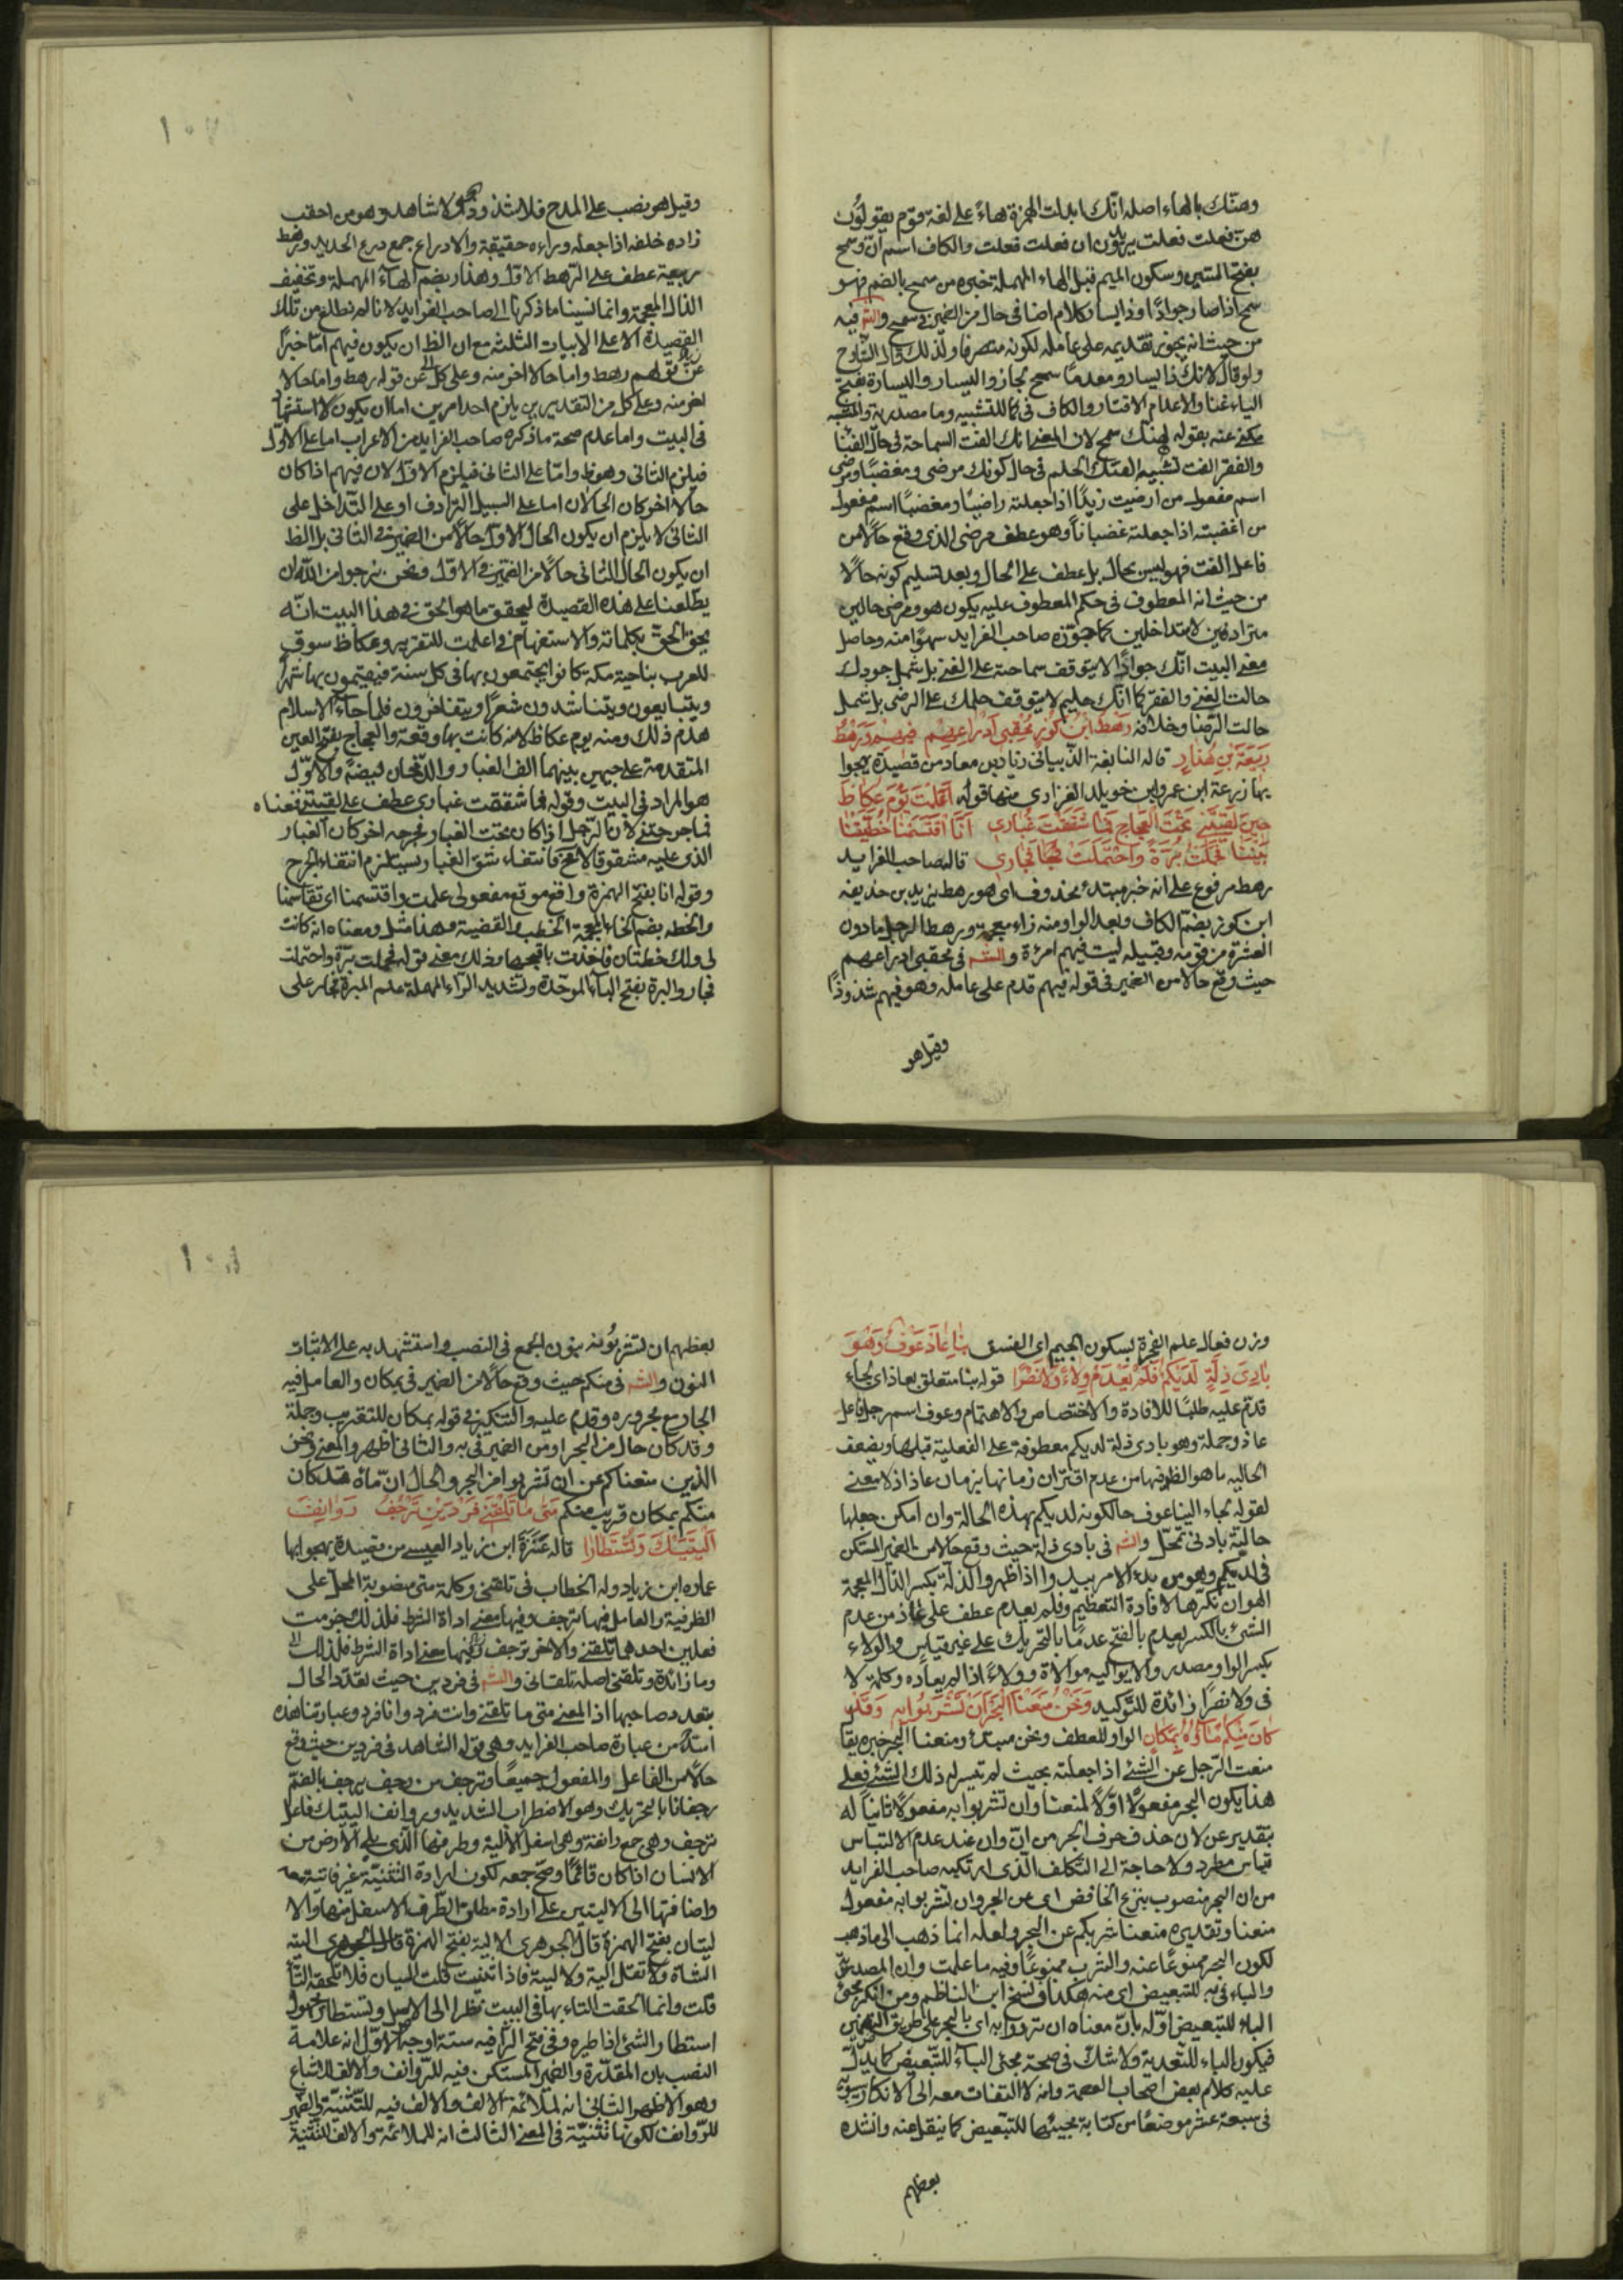 وهنك بالهاء اصله انك ابدلت الهمزة هاءً على لغة قوم يقولون
هن فعلت فعلت يريدون ان فعلت فعلت والكاف اسم ان وسمح
بفتح السين وسكون الميم قبل الحاء المهملة خبره من سمح بالضم فهو
سمح اذا صار جوادًا وذا يسار كلام اضافى حال من الضمير فى سمح والشه فيه
من حيث انه يجوز تقديمه على عامله لكونه متصرفا ولذلك قال الشارح
ولو قال لانك ذا يسار ومعدمًا سمح لجاز واليسار واليسارة بفتح
الياء غنا والاعدام الاقتار والكاف فى كما للتشبيه وما مصدرية والمشبه
مكنى عنه بقوله لهنك سمح لان المعنى انك الفت السماحة فى حال الغنا
والفقر الفت تشبيه الفتك الحلم فى حال كونك مرضى ومغضبًا ومرضى
اسم مفعول من ارضيت زيدًا اذا جعلته راضيًا ومغضبًا اسم مفعول
من اغضبته اذا جعلته غضبانًا وهو عطف مرضى الذى وقع حالًا من
فاعل الفت فهو ليس بحال بل عطف على الحال وبعد تسليم كونه حالًا
من حيث انه المعطوف فى حكم المعطوف عليه يكون هو ومرضى حالين
مترادفين لا متداخلين كما جوزه صاحب الفرايد سهوًا منه وحاصل
معنى البيت انك جوادًا لا يتوقف سماحته على الغنى بل شمل جودك
حالت الغنى والفقر كما انك حليم لا يتوقف حلمك على الرضى بل شمل
حالت الرضا وخلافه رهط ابن كوز محقبى ادراعهم فيهم ورهط
ربيعة بن حذار قاله النابغة الذبيانى زياد بن معاد من قصيدة يهجوا
بها زرعة ابن عمرو ابن خويلد الفزارى منها قوله اعلمت يوم عكاظ
حين لقيتنى تحت العجاج فما شققت غبارى انا اقتسمنا خطتينا
بيننا فحملت برة واحتملت فجار قال صاحب الفرايد
رهط مرفوع على انه خبر مبتدء محذوف اى هو رهط يزيد بن حذيفه
ابن كوز بضم الكاف وبعد الواو منه زاء معجمة ورهط الرجل ما دون
العشرة من قومه وقبيله ليت فيهم امرءة والشه فى محقبى ادراعهم
حيث وقع حالا من الضمير فى قوله فيهم قدم على عامله وهو فيهم شذوذًا
وقيل هو
١٠٧
وقيل هو نصب على المدح فلا شذوذ ولا شاهد وهو من احقب
زاده خلفه اذا جعله وراءه حقيقة والادراع جمع درع الحديد ورهط
ربيعة عطف على الرهط الاول وحذار بضم الحاء المهملة وتخفيف
الذال المعجمة وانما نسبنا ما ذكرنا الى صاحب الفرايد لانا لم نطلع من تلك
القصيدة الا على الابيات الثلثة مع ان الظ ان يكون فيهم اما خبرًا
عن قولهم رهط واما حالا اخر منه وعلى كل عن قوله رهط واما حالا
اخر منه وعلى كل من التقديرين يلزم احد امرين اما ان يكون لا استشهاد
فى البيت واما عدم صحة ما ذكره صاحب الفرايد من الاعراب اما على الاول
فيلزم الثانى وهو ظ واما على الثانى فيلزم الاول لان فيهم اذا كان
حالا اخر كان الحالان اما على السبيل الترادف او على التداخل على
الثانى لا يلزم ان يكون الحال الاول حالًا من الضمير فى الثانى بل الظ
ان يكون الحال الثانى حالًا من الضمير فى الاول ونحن نرجوا من الله ان
يطلعنا على هذه القصيدة ليحقق ما هو الحق فى هذا البيت انه
يحق الحق بكلماته والاستفهام فى اعلمت للتقرير وعكاظ سوق
للعرب بناحية مكة كانوا يجتمعون بها فى كل سنة فيقيمون بها شهرًا
ويتبايعون ويتناشدون شعرًا ويتفاخرون فلما جاء الاسلام
هدم ذلك ومنه يوم عكاظ لانه كانت بها وقعة والعجاج بفتح العين
المتقدمة على جيمين بينهما الف الغبار والدخان ايضًا والاول
هو المراد فى البيت وقوله فما شققت غبارى عطف على لقيتنى فمعناه
فما جرحتنى لان الرجل اذا كان تحت الغبار فجرحه اخر كان الغبار
الذى عليه مشقوقا لا محة فانتفاء شق الغبار يستلزم انتفاء الجرح
وقوله انا بفتح الهمزة واقع موقع مفعولى علمت واقتسمنا اى تقاسمنا
والخطه بضم الخاء المعجمة الخطب والقضية وهذا مثل ومعناه انه كانت
لى ولك خطتان فاخذت باقبحها وذلك معنى قوله فحملت برة واحتملت
فجار والبرة بفتح الباء الموحدة وتشديد الراء المهملة علم المبرة فجار على
وزن فعال علم الفجرة بسكون الجيم اى الفسق بنا عاذ عوف وهو
بادى ذلة لديكم فلم يعدم ولاء ولا نصرًا قوله بنا متعلق بعاذ اى لجاء
قدم عليه طلبًا للافادة والاختصاص والاهتمام وعوف اسم رجل فاعل
عاذ وجملة وهو بادى ذلة لديكم معطوفة على الفعلية قبلها ويضعف
الحاليه ما هو الظ فيها من عدم اقتران زمانها بزمان عاذ اذ لا معنى
لقوله لجاء الينا عوف حالكونه لديكم بهذه الحالة وان امكن جعلها
حالية بادنى تمحل والشه فى بادى ذلة حيث وقع حالا من الضمير المستكن
فى لديكم وهو من بدء الامر يبدوا اذا ظهر والذلة بكسر الذال المعجمة
الهوان نكرها لافادة التعظيم وفلم يعدم عطف على عاذ من عدم
الشئ بالكسر يعدم بالفتح عدمًا بالتحريك على غير قياس والولاء
بكسر الواو مصدر والا يواليه موالاة وولاءً اذا لم يعاده وكلمة لا
فى ولا نصرًا زائدة للتوكيد ونحن منعنا البحر ان تشربوا به وقد
كان منكم ماؤه بمكان الواو للعطف ونحن مبتدء ومنعنا البحر خبره يقا
منعت الرجل عن الشئ اذا جعلته بحيث لم تيسر له ذلك الشئ فعلى
هذا يكون البحر مفعولًا اولًا لمنعنا وان تشربوا به مفعولًا ثانيًا له
بتقدير عن لان حذف حرف الجر من ان وان عند عدم الالتباس
قياس مطرد ولا حاجة الى التكلف الذى ارتكبه صاحب الفرايد
من ان البحر منصوب بنزع الخافض اى عن البحر وان تشربوا به مفعول
منعنا وتقديره منعنا شربكم عن البحر ولعله انما ذهب الى ما ذهب
لكون البحر ممنوعًا عنه والشرب ممنوعًا وفيه ما علمت وان المصدرية
والباء فى به للتبعيض اى منه هكذا فى نسخ ابن الناظم ومن انكر مجئ
الباء للتبعيض اوله بان معناه ان ترووا به اى بالبحر على طريق التضمين
فيكون الباء للتعدية ولا شك فى صحة مجئ الباء للتبعيض كما يدل
عليه كلام بعض اصحاب العصمة وانه لا التفات معه الى الانكار سيبويه
فى سبعة عشر موضعًا من كتابه مجيئها للتبعيض كما ينقل عنه وانشده
بعظهم
١٠٨
بعظهم ان تشربونه بنون الجمع فى النصب واستشهد به على الاثبات
النون والشه فى منكم حيث وقع حالًا من الضمير فى بمكان والعامل فيه
الجار مع مجروره وقدم عليه والتنكير فى قوله بمكان للتقريب وجملة
وقد كان حال من البحر او من الضمير فى به والثانى اظهر والمعنى ونحن
الذين منعناكم عن ان تشربوا من البحر والحال ان ماءه قد كان
منكم بمكان قريب منكم متى ما تلقنى فردين ترجف روانف
اليتيك وتستطارا قاله عنترة ابن زياد العبسى من قصيدة يهجوا بها
عماره ابن زياد وله الخطاب فى تلقنى وكلمة متى منصوبة المحل على
الظرفية والعامل فيها ترجف وفيها معنى اداة الشرط فلذلك جزمت
فعلين احدهما تلقنى والاخر ترجف وفيها معنى اداة الشرط فلذلك
وما زائدة وتلقنى اصله تلقانى والشه فى فردين حيث تعدد الحال
بتعدد صاحبها اذ المعنى متى ما تلقنى وانت فرد وانا فرد وعبارتنا هذه
اسد من عبارة صاحب الفرايد وهى قوله الشاهد فى فردين حيث وقع
حالًا من الفاعل والمفعول جميعًا وترجف من رجف يرجف بالضم
رجفانا بالتحريك وهو الاضطراب الشديد وروانف اليتيك فاعل
ترجف وهى جمع رانفة وهى اسفل الالية وطرفها الذى يلى الارض من
الانسان اذا كان قائمًا وصح جمعه لكون ارادة التثنية غير فائتة معه
واضافتها الى الاليتين على ارادة مطلق الطرف الاسفل منها والا
ليتان بفتح الهمزة قال الجوهرى الالية بفتح الهمزة قال الجوهرى الية
الشاة ولا تقل الية ولا لية فاذا ثنيت قلت اليان فلا تلحقه التاء
قلت وانما الحقت التاء بها فى البيت نظرا الى الاصل وتستطار مجهول
استطار الشئ اذا طيره وفى فتح الراء فيه ستة اوجه الاول انه علامة
النصب بان المقدرة والضمير المستكن فيه للروانف والالف للاشباع
وهو الاظهر الثانى انه لملائمة الالف والالف فيه للتثنية والضمير
للروانف لكونها تثنية فى المعنى الثالث انه للملائمة والالف للتثنية